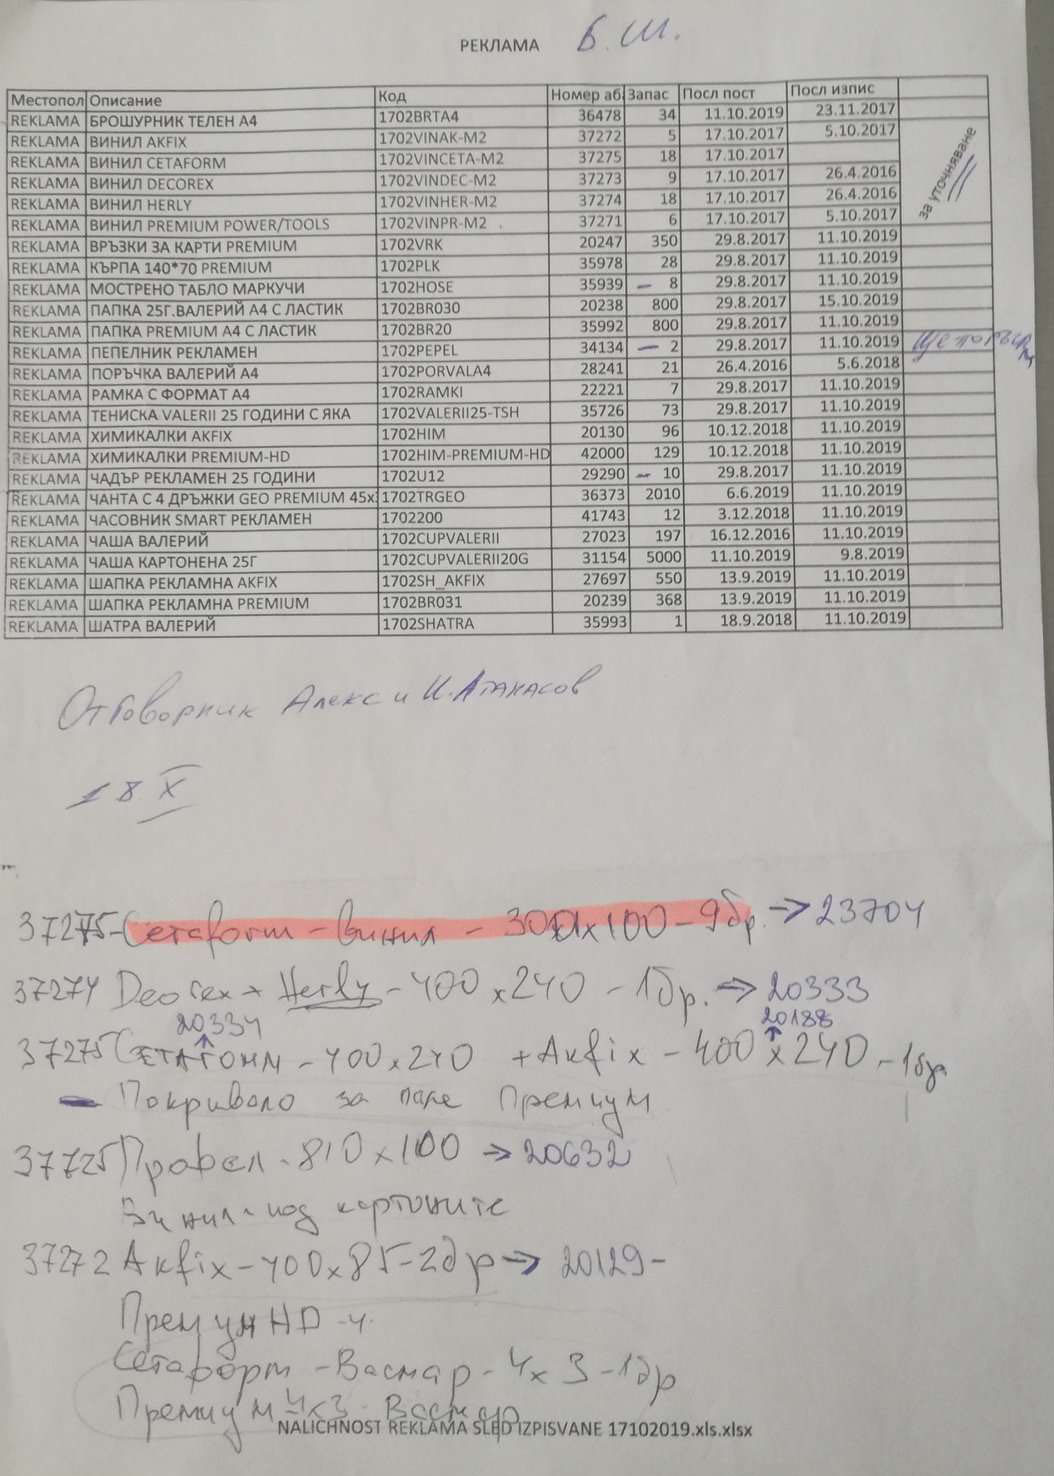 РЕКЛАМА Б.Ш.
Местопол Описание Код Номер аб Запас Посл пост Посл изпис
REKLAMA БРОШУРНИК ТЕЛЕН А4 1702BRTA4 36478 34 11.10.2019 23.11.2017
REKLAMA ВИНИЛ AKFIX 1702VINAK-M2 37272 5 17.10.2017 5.10.2017
REKLAMA ВИНИЛ CETAFORM 1702VINCETA-M2 37275 18 17.10.2017
REKLAMA ВИНИЛ DECOREX 1702VINDEC-M2 37273 9 17.10.2017 26.4.2016
REKLAMA ВИНИЛ HERLY 1702VINHER-M2 37274 18 17.10.2017 26.4.2016
REKLAMA ВИНИЛ PREMIUM POWER/TOOLS 1702VINPR-M2 37271 6 17.10.2017 5.10.2017
за уточняване
REKLAMA ВРЪЗКИ ЗА КАРТИ PREMIUM 1702VRK 20247 350 29.8.2017 11.10.2019
REKLAMA КЪРПА 140*70 PREMIUM 1702PLK 35978 28 29.8.2017 11.10.2019
REKLAMA МОСТРЕНО ТАБЛО МАРКУЧИ 1702HOSE 35939 – 8 29.8.2017 11.10.2019
REKLAMA ПАПКА 25Г.ВАЛЕРИЙ А4 С ЛАСТИК 1702BR030 20238 800 29.8.2017 15.10.2019
REKLAMA ПАПКА PREMIUM А4 С ЛАСТИК 1702BR20 35992 800 29.8.2017 11.10.2019
REKLAMA ПЕПЕЛНИК РЕКЛАМЕН 1702PEPEL 34134 – 2 29.8.2017 11.10.2019
REKLAMA ПОРЪЧКА ВАЛЕРИЙ А4 1702PORVALA4 28241 21 26.4.2016 5.6.2018
REKLAMA РАМКА С ФОРМАТ А4 1702RAMKI 22221 7 29.8.2017 11.10.2019
REKLAMA ТЕНИСКА VALERII 25 ГОДИНИ С ЯКА 1702VALERII25-TSH 35726 73 29.8.2017 11.10.2019
REKLAMA ХИМИКАЛКИ AKFIX 1702HIM 20130 96 10.12.2018 11.10.2019
REKLAMA ХИМИКАЛКИ PREMIUM-HD 1702HIM-PREMIUM-HD 42000 129 10.12.2018 11.10.2019
REKLAMA ЧАДЪР РЕКЛАМЕН 25 ГОДИНИ 1702U12 29290 – 10 29.8.2017 11.10.2019
REKLAMA ЧАНТА С 4 ДРЪЖКИ GEO PREMIUM 45x 1702TRGEO 36373 2010 6.6.2019 11.10.2019
REKLAMA ЧАСОВНИК SMART РЕКЛАМЕН 1702200 41743 12 3.12.2018 11.10.2019
REKLAMA ЧАША ВАЛЕРИЙ 1702CUPVALERII 27023 197 16.12.2016 11.10.2019
REKLAMA ЧАША КАРТОНЕНА 25Г 1702CUPVALERII20G 31154 5000 11.10.2019 9.8.2019
REKLAMA ШАПКА РЕКЛАМНА AKFIX 1702SH_AKFIX 27697 550 13.9.2019 11.10.2019
REKLAMA ШАПКА РЕКЛАМНА PREMIUM 1702BR031 20239 368 13.9.2019 11.10.2019
REKLAMA ШАТРА ВАЛЕРИЙ 1702SHATRA 35993 1 18.9.2018 11.10.2019
Отговорник Алекс и И. Атанасов
18 X
37275-Сетаформ - винил - 300x100 - 9бр. → 23704
37274 Decorex + Herly - 400x240 - 1бр. → 20333
20334 20188
37275 - 400x240 + Akfix - 400x240 - 1бр
– Покривало за пале Премиум
37725 Профел - 810x100 → 20632
Винил-под картоните
37272 Akfix - 400x85-2бр → 20129-
Премиум HD - 4
Сетаформ - Васмар - 4x3 - 1бр
Премиум 4x3 -
NALICHNOST REKLAMA SLED IZPISVANE 17102019.xls.xlsx